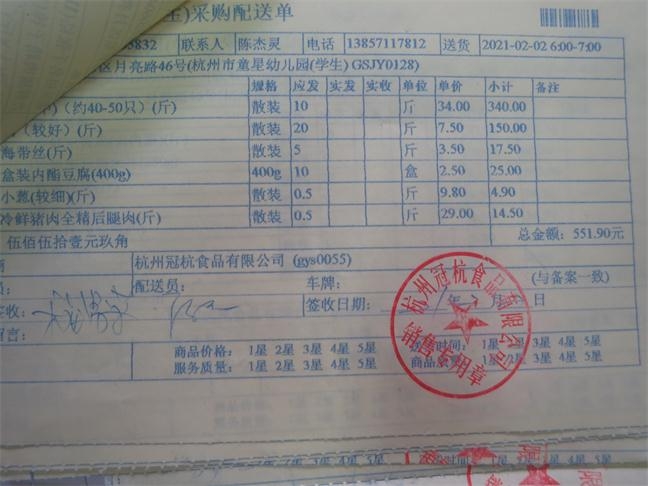 )采购配送单
5832 联系人 陈杰灵 电话 13857117812 送货 2021-02-02 6:00-7:00
区月亮路46号(杭州市童星幼儿园(学生) GSJY0128)
规格 应发 实发 实收 单位 单价 小计 备注
(约40-50只)(斤) 散装 10 斤 34.00 340.00
(较好)(斤) 散装 20 斤 7.50 150.00
海带丝(斤) 散装 5 斤 3.50 17.50
盒装内酯豆腐(400g) 400g 10 盒 2.50 25.00
小葱(较细)(斤) 散装 0.5 斤 9.80 4.90
冷鲜猪肉全精后腿肉(斤) 散装 0.5 斤 29.00 14.50
伍佰伍拾壹元玖角 总金额: 551.90元
杭州冠杭食品有限公司 (gys0055)
配送员: 车牌: (与备案一致)
签收: 签收日期: 年 月 日
留言:
商品价格: 1星 2星 3星 4星 5星 时间: 1星 2星 3星 4星 5星
服务质量: 1星 2星 3星 4星 5星 商品质量: 1星 2星 3星 4星 5星
杭州冠杭食品有限公司
销售专用章
1星 2星 3星 4星 5星